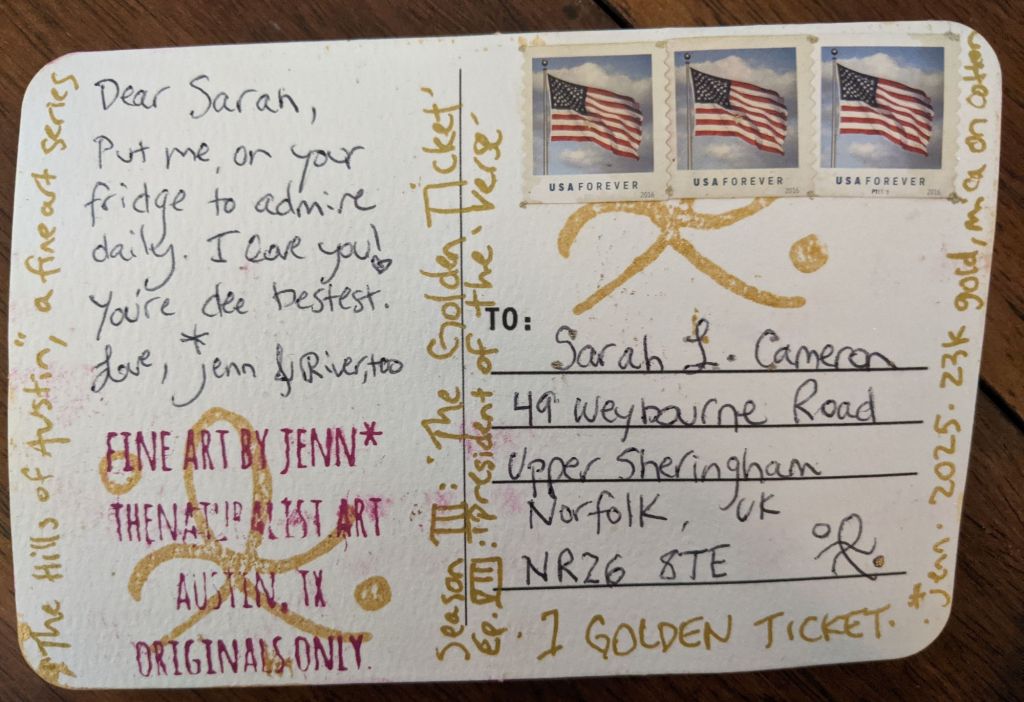 Dear Sarah,
Put me on your
fridge to admire
daily. I love you!
You're dee bestest.
Love, *jenn & River, too
FINE ART BY JENN*
THENATURALIST.ART
AUSTIN, TX
ORIGINALS ONLY.
"The Hills of Austin", a fine art series
Season III: 'The Golden Ticket'
Ep. VII: president of the. verse.
USA FOREVER
2016
USA FOREVER
2016
USA FOREVER
2016
TO:
Sarah L. Cameron
49 Weybourne Road
Upper Sheringham
Norfolk, UK
NR26 8TE
1 GOLDEN TICKET.
*jenn. 2025. 23k gold, mica on cotton